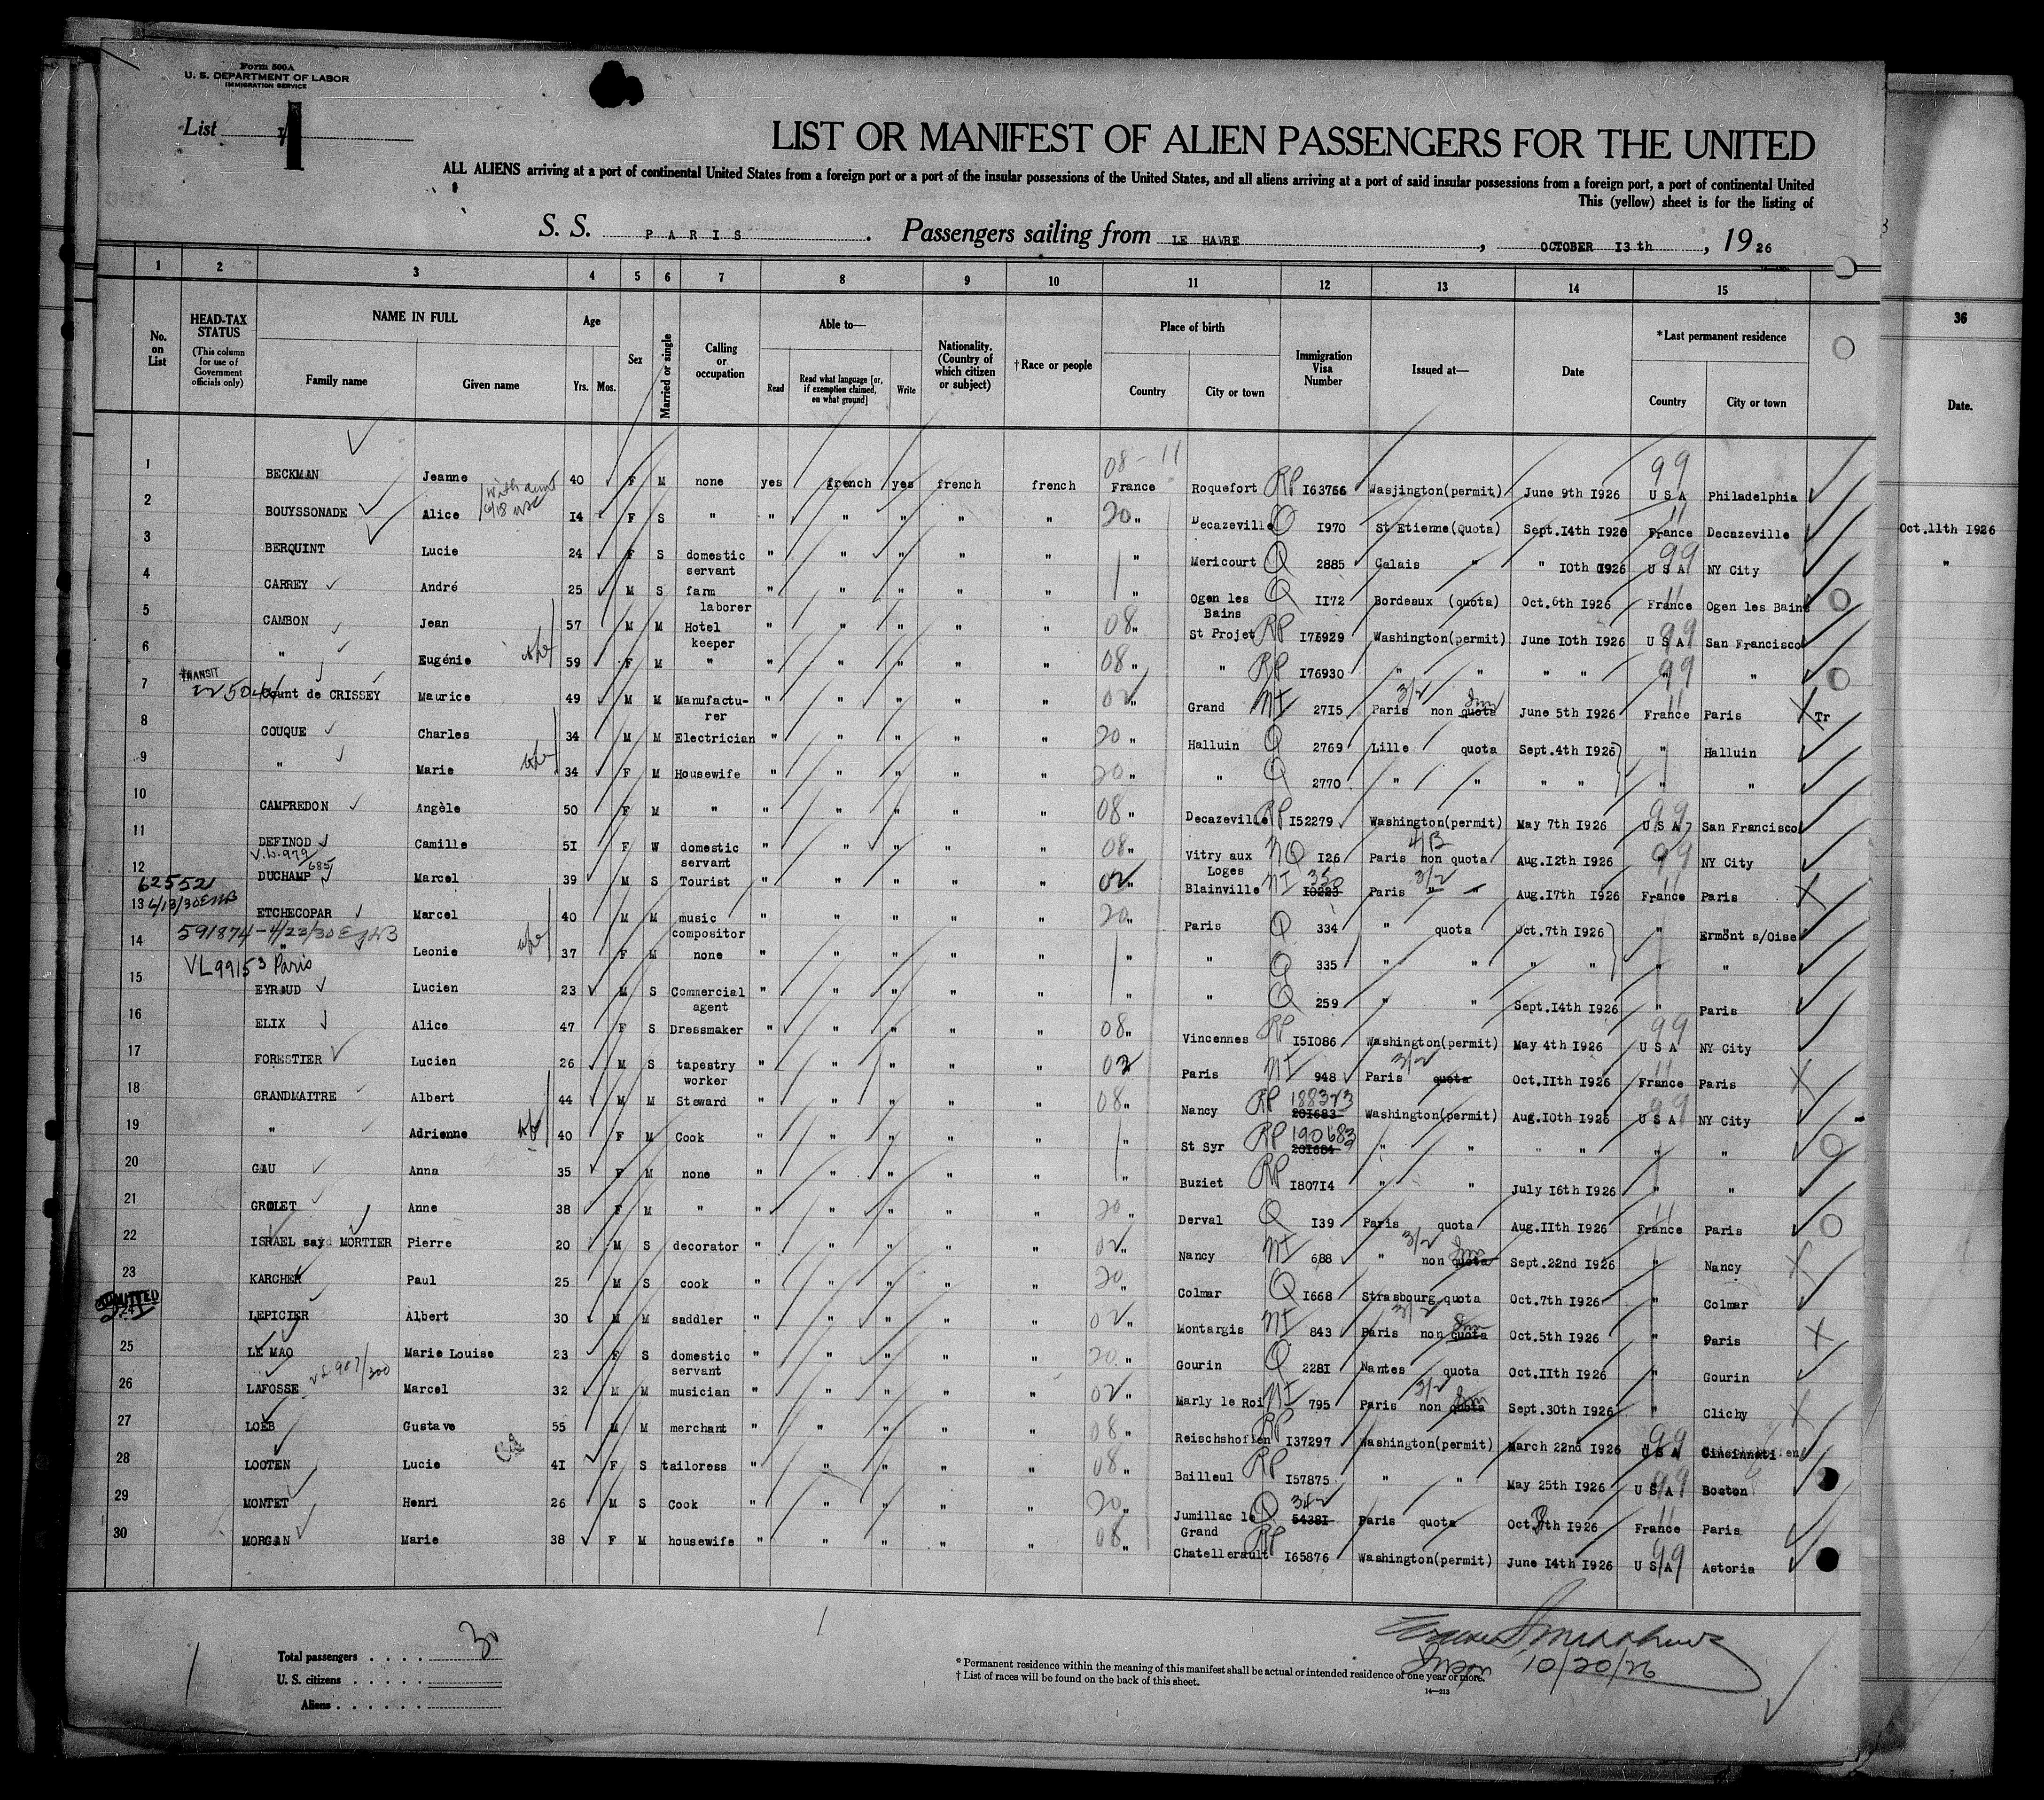 Form 500A
U. S. DEPARTMENT OF LABOR
IMMIGRATION SERVICE
List
LIST OR MANIFEST OF ALIEN PASSENGERS FOR THE UNITED
ALL ALIENS arriving at a port of continental United States from a foreign port or a port of the insular possessions of the United States, and all aliens arriving at a port of said insular possessions from a foreign port, a port of continental United
This (yellow) sheet is for the listing of
S. S. PARIS. Passengers sailing from LE HAVRE, OCTOBER I3th, 1926
1 2 3 4 5 6 7 8 9 10 11 12 13 14 15
36
No. on List
HEAD-TAX STATUS
(This column for use of Government officials only)
NAME IN FULL
Family name
Given name
Age
Yrs. Mos.
Sex
Married or single
Calling or occupation
Able to—
Read
Read what language [or, if exemption claimed, on what ground]
Write
Nationality. (Country of which citizen or subject)
†Race or people
Place of birth
Country
City or town
Immigration Visa Number
Issued at—
Date
*Last permanent residence
Country
City or town
Date.
08 - 11
1 BECKMAN Jeanne 40 F M none yes french yes french french France Roquefort RP I63756 Wasjington(permit) June 9th I926 99 U S A Philadelphia
2 BOUYSSONADE Alice I4 F S " " " " " " 20 " Decazeville Q I970 St Etienne(Quota) Sept.I4th I926 11 France Decazeville Oct.IIth I926
3 BERQUINT Lucie 24 F S domestic servant " " " " " " Mericourt Q 2885 Calais " " I0th I926 99 U S A NY City "
4 CARREY André 25 M S farm laborer " " " " " " Ogen les Bains Q II72 Bordeaux (quota) Oct.6th I926 11 France Ogen les Bains
5 CAMBON Jean 57 M M Hotel keeper " " " " " 08 " St Projet RP I76929 Washington(permit) June I0th I926 99 U S A San Francisco
6 " Eugénie 59 F M " " " " " " 08 " " RP I76930 " " " " 99 " "
TRANSIT
7 Count de CRISSEY Maurice 49 M M Manufacturer " " " " " 02 " Grand NI 27I5 Paris non quota 3/2 June 5th I926 11 France Paris Tr
8 COUQUE Charles 34 M M Electrician " " " " " 20 " Halluin Q 2769 Lille quota Sept.4th I926 " Halluin
9 " Marie 34 F M Housewife " " " " " 20 " " Q 2770 " " " " " "
10 CAMPREDON Angèle 50 F M " " " " " " 08 " Decazeville RP I52279 Washington(permit) May 7th I926 99 U S A San Francisco
11 DEFINOD Camille 5I F W domestic servant " " " " " 08 " Vitry aux Loges NQ I26 Paris non quota 4/B Aug.I2th I926 99 " NY City
12 DUCHAMP Marcel 39 M S Tourist " " " " " 02 " Blainville NI 350 I0223 Paris " " 3/2 Aug.I7th I926 11 France Paris
625521
6/13/30
13 ETCHECOPAR Marcel 40 M M music compositor " " " " " 20 " Paris Q 334 " quota Oct.7th I926 " Ermont s/Oise
591874 - 4/23/30
14 " Leonie 37 F M none " " " " " " " Q 335 " " " " " "
VL99153 Paris
15 EYRAUD Lucien 23 M S Commercial agent " " " " " " " Q 259 " " Sept.I4th I926 " Paris
16 ELIX Alice 47 F S Dressmaker " " " " " 08 " Vincennes RP I5I086 Washington(permit) May 4th I926 99 U S A NY City
17 FORESTIER Lucien 26 M S tapestry worker " " " " " 02 Paris NI 948 Paris quota 3/2 Oct.IIth I926 11 France Paris
18 GRANDMAITRE Albert 44 M M Steward " " " " " 08 " Nancy RP 188373 20I683 Washington(permit) Aug.I0th I926 99 U S A NY City
19 " Adrienne 40 F M Cook " " " " " " St Syr RP 190683 20I684 " " " " " "
20 GAU Anna 35 F M none " " " " " " Buziet RP I807I4 " " July I6th I926 " "
21 GROLET Anne 38 F M " " " " " " 20 " Derval Q I39 Paris quota Aug.IIth I926 11 France Paris
22 ISRAEL said MORTIER Pierre 20 M S decorator " " " " " 02 " Nancy NI 688 " non quota 3/2 Sept.22nd I926 " Nancy
23 KARCHER Paul 25 M S cook " " " " " 20 " Colmar Q I668 Strasbourg quota Oct.7th I926 " Colmar
ADMITTED
24 LEPICIER Albert 30 M M saddler " " " " " 02 " Montargis NI 843 Paris non quota 3/2 Oct.5th I926 " Paris
25 LE MAO Marie Louise 23 F S domestic servant " " " " " 20 " Gourin Q 228I Nantes quota Oct.IIth I926 " Gourin
26 LAFOSSE Marcel 32 M M musician " " " " " 02 " Marly le Roi NI 795 Paris non quota 3/2 Sept.30th I926 " Clichy
27 LOEB Gustave 55 M M merchant " " " " " 08 " Reischshoffen RP I37297 Washington(permit) March 22nd I926 99 U S A Cincinnati
28 LOOTEN Lucie 4I F S tailoress " " " " " 08 " Bailleul RP I57875 " " May 25th I926 99 U S A Boston
29 MONTET Henri 26 M S Cook " " " " " 20 " Jumillac le Grand Q 342 5438I Paris quota Oct 9th I926 11 France Paris
30 MORGAN Marie 38 F M housewife " " " " " 08 " Chatellerault RP I65876 Washington(permit) June I4th I926 99 U S A Astoria
Total passengers . . . . 30
U. S. citizens . . . . .
Aliens . . . . . .
* Permanent residence within the meaning of this manifest shall be actual or intended residence of one year or more.
† List of races will be found on the back of this sheet.
14—213
10/20/26